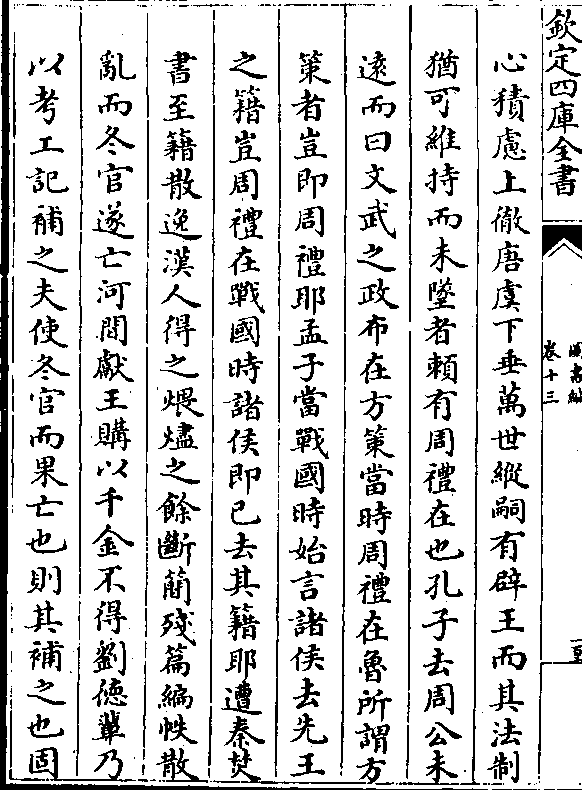 欽定四庫全書
圖書編
卷十三
心積慮上徹唐虞下垂萬世縱嗣有辟王而其法制
猶可維持而未墜者頼有周禮在也孔子去周公未
逺而曰文武之政布在方策當時周禮在魯所謂方
策者豈即周禮耶孟子當戰國時始言諸侯去先王
之籍豈周禮在戰國時諸侯即已去其籍耶遭秦焚
書至籍散逸漢人得之煨燼之餘斷簡殘篇編帙散
亂而冬官遂亡河間獻王購以千金不得劉徳軰乃
以考工記補之夫使冬官而果亡也則其補之也固